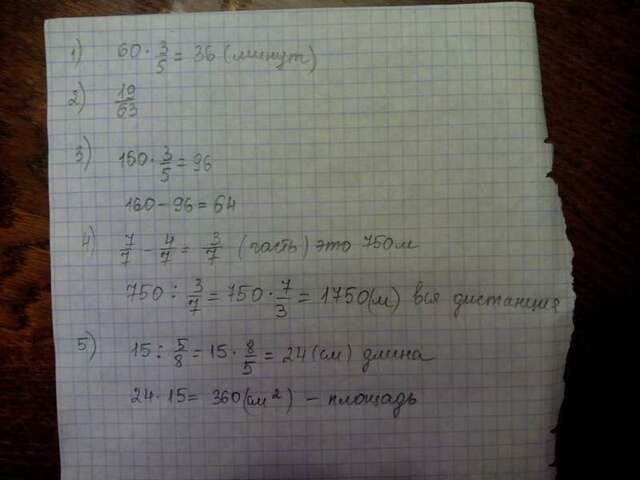 1) 60 · 3/5 = 36 (минут)
2) 19/63
3) 160 · 3/5 = 96
160 - 96 = 64
4) 7/7 - 4/7 = 3/7 (часть) это 750 м
750 : 3/7 = 750 · 7/3 = 1750 (м) вся дистанция
5) 15 : 5/8 = 15 · 8/5 = 24 (см) длина
24 · 15 = 360 (см²) - площадь